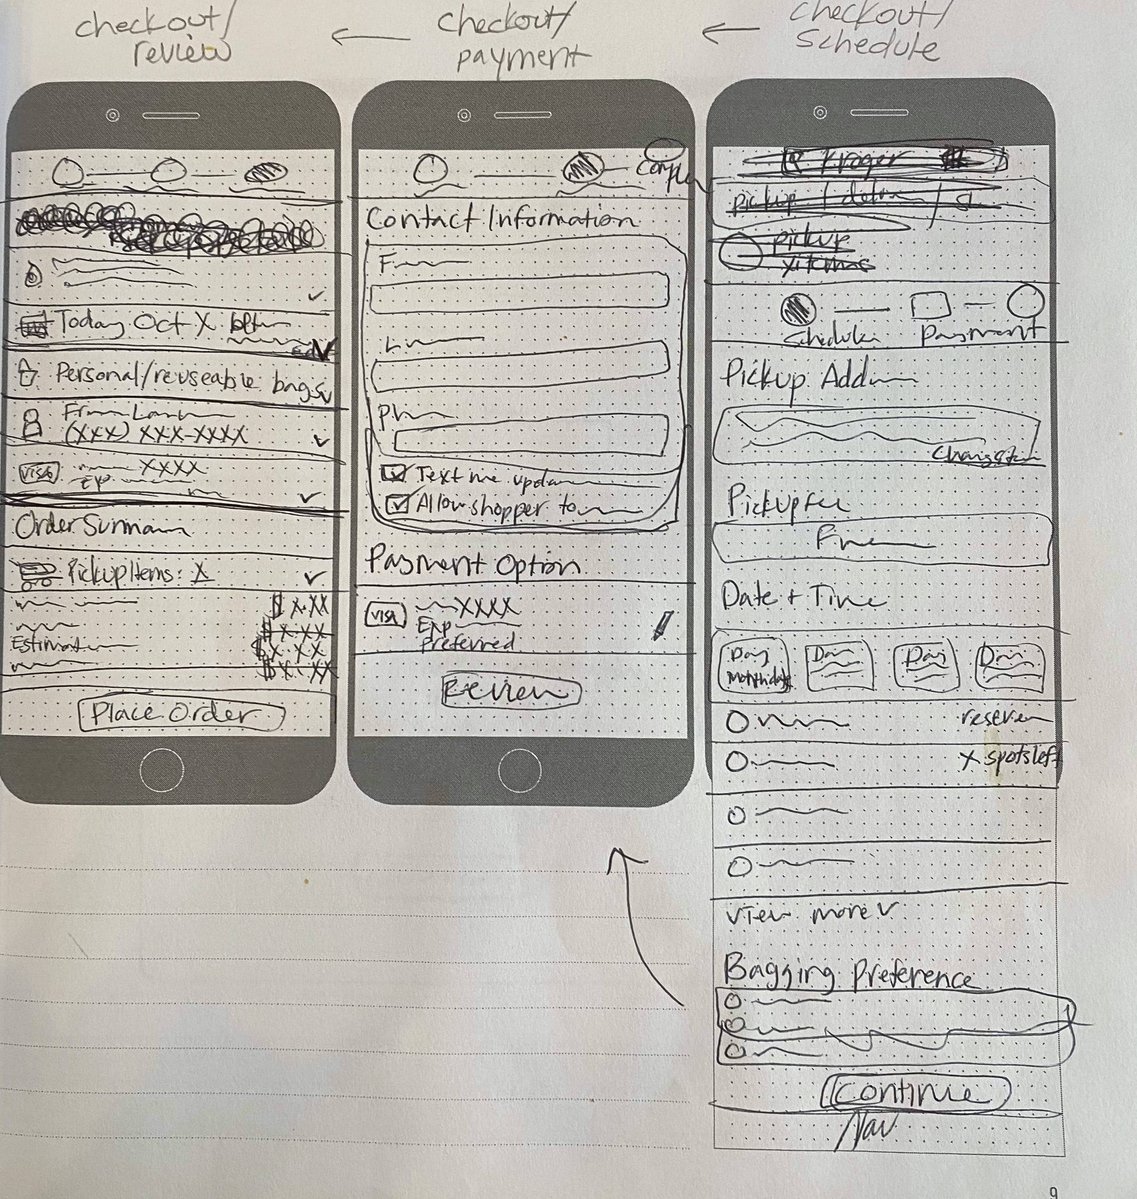 checkout/
review
checkout/
payment
checkout/
schedule
Today Oct X
Personal/reuseable bags
(XXX) XXX-XXXX
VISA XXXX
Exp
Order Summary
Pickup Items: X
$ X.XX
$ X.XX
Estimat
$ X.XX
$ X.XX
Place Order
Contact Information
F
L
Ph
Text me updates
Allow shopper to
Payment Option
VISA XXXX
Exp
Preferred
Review
Kroger
pickup /
pickup
X items
Schedule Payment
Pickup Add
Change
Pickup Fee
Free
Date + Time
Day
Month day
Day
Day
Day
reserve
X spots left
View more v
Bagging Preference
Continue
Nav
9